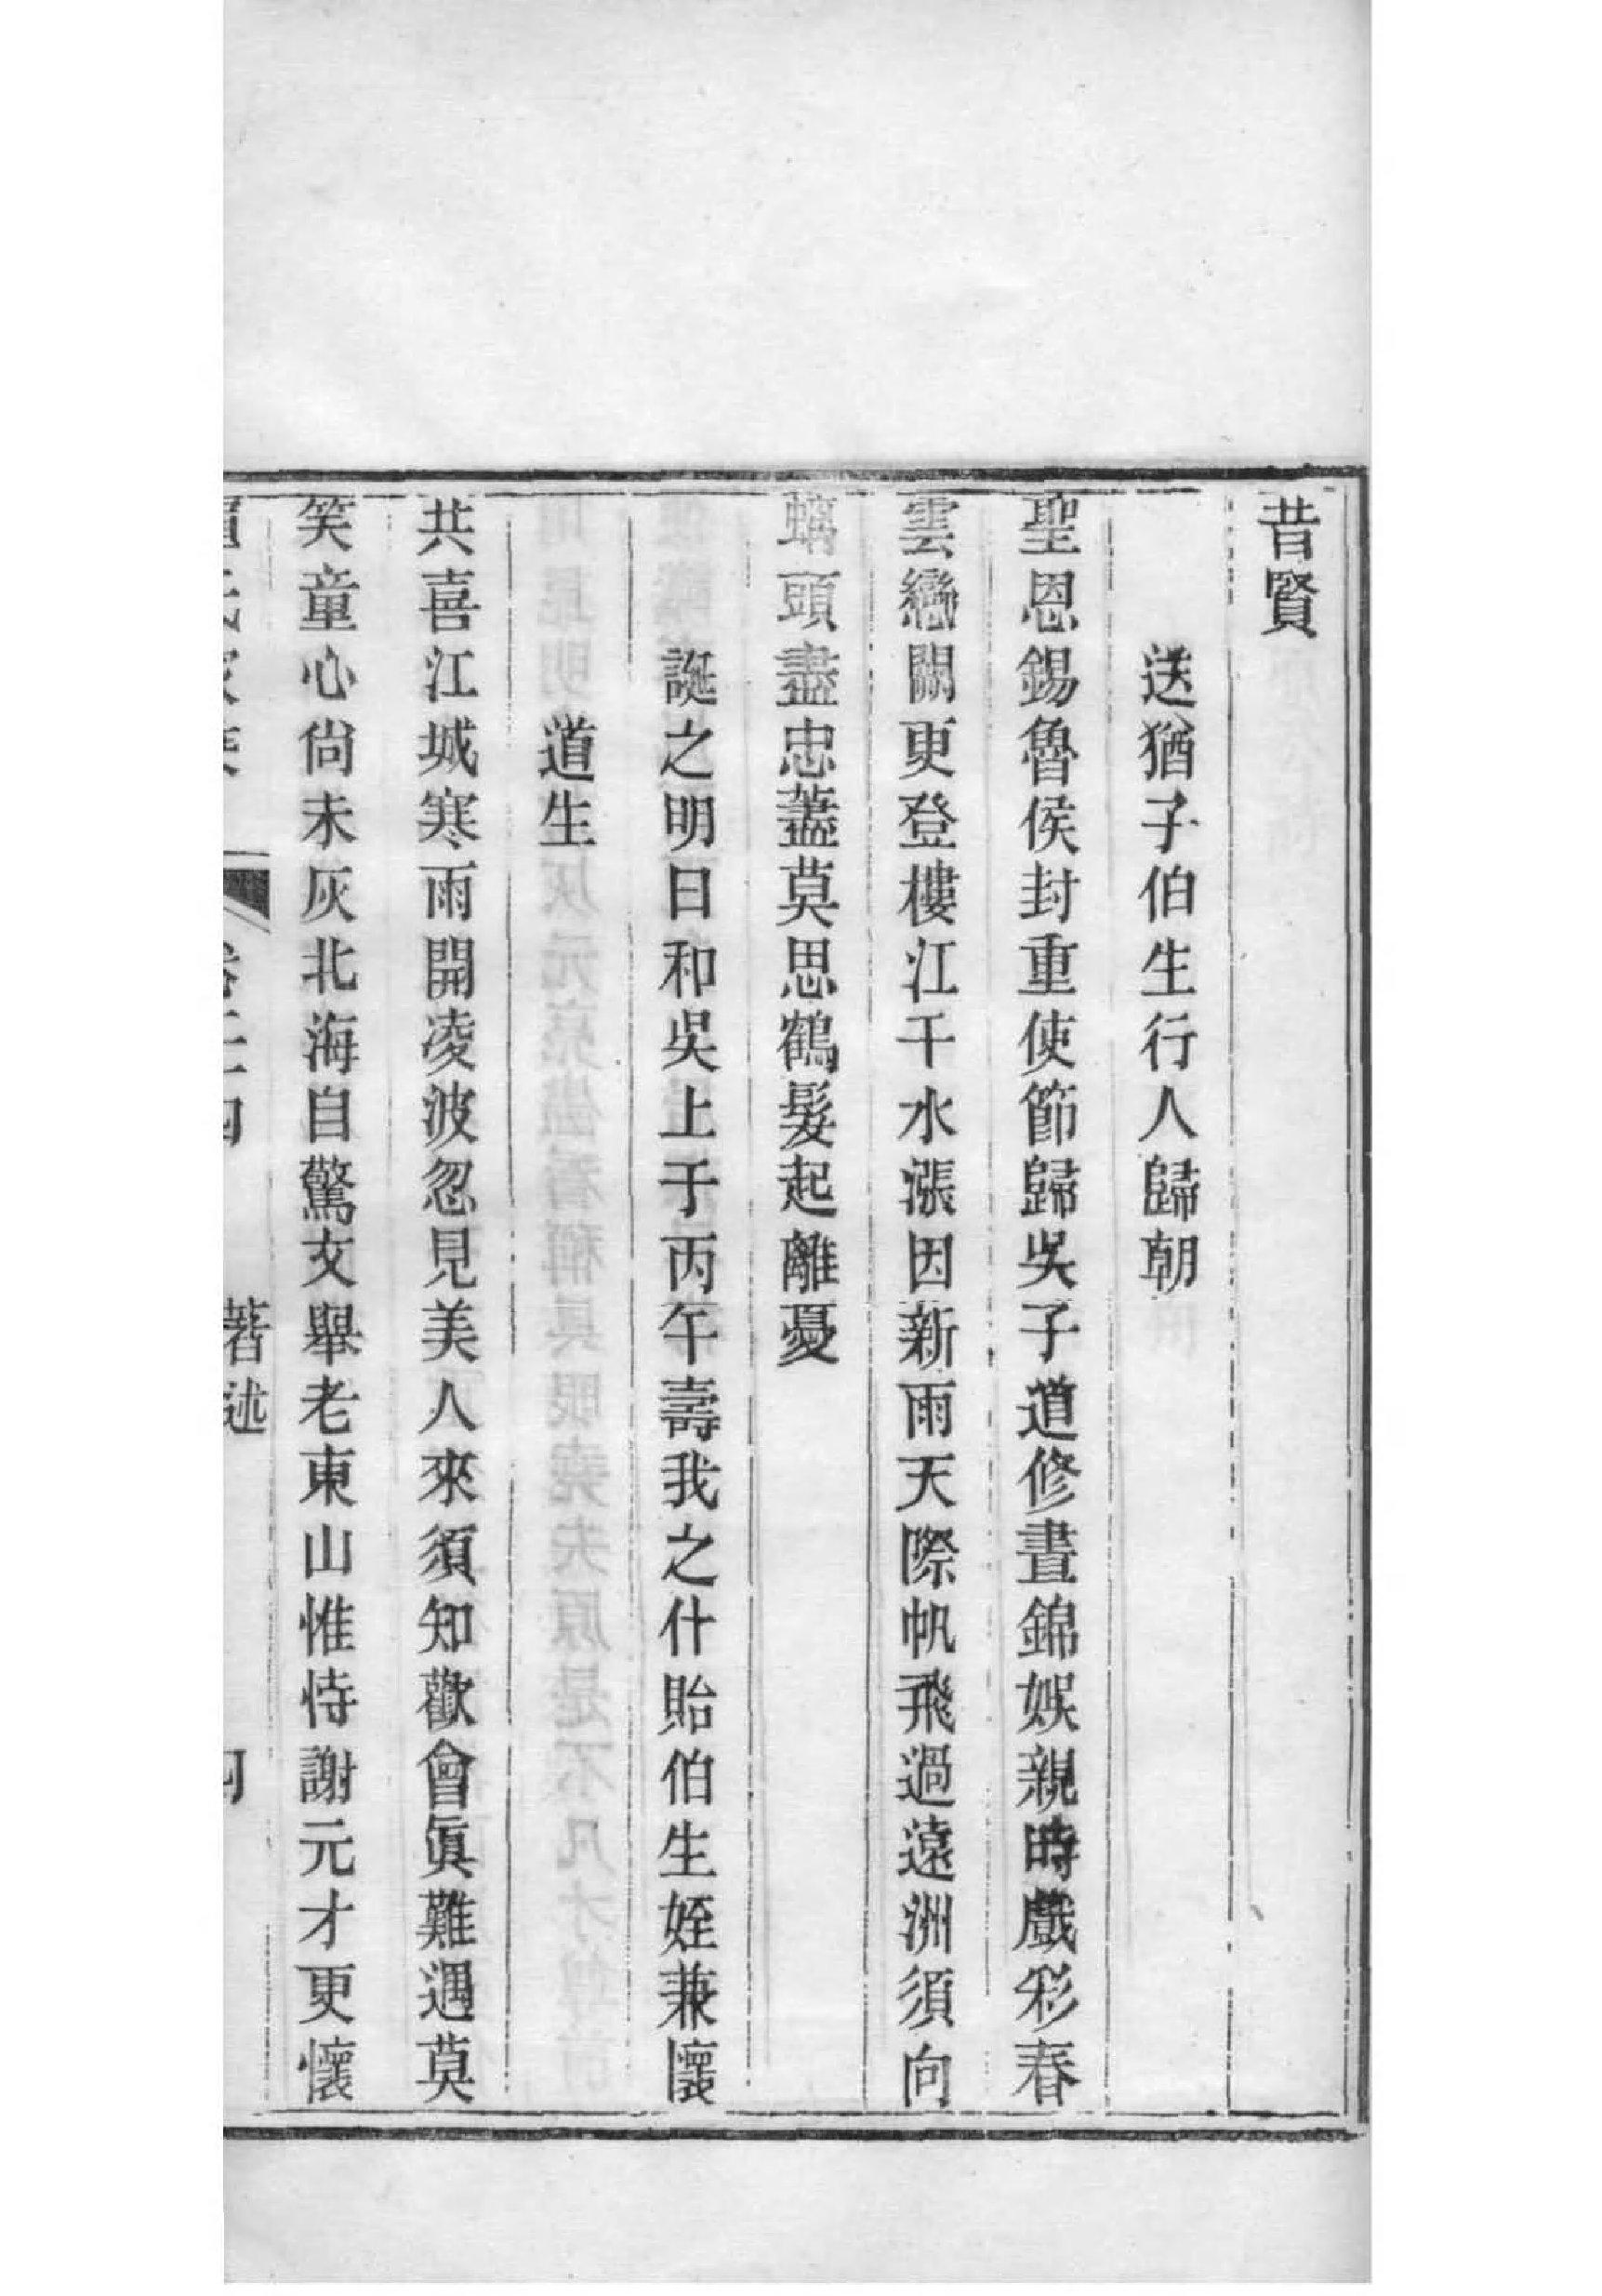 昔賢
送猶子伯生行人歸朝
聖恩錫魯侯封重使節歸吳子道修晝錦娛親時戲彩春
雲戀闕更登樓江干水漲因新雨天際帆飛過遠洲須向
螭頭盡忠藎莫思鶴髮起離憂
誕之明日和吳上于丙午壽我之什貽伯生姪兼懷
道生
共喜江城寒雨開凌波忽見美人來須知歡會眞難遇莫
笑童心尙未灰北海自驚文舉老東山惟恃謝元才更懷
著述